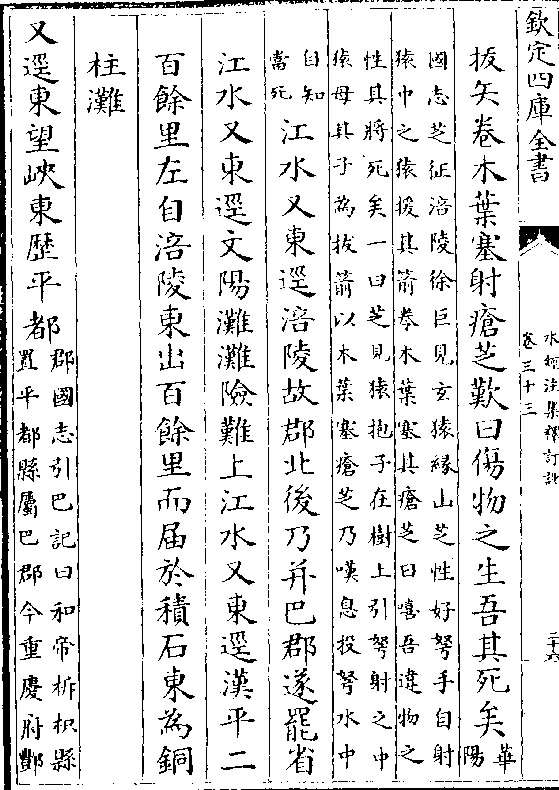 欽定四庫全書
水經注集釋訂訛
卷三十三
二十六
拔矢卷木葉塞射瘡芝歎曰傷物之生吾其死矣華
陽
國志芝征涪陵徐巨見玄猿緣山芝性好弩手自射
猿中之猿援其箭卷木葉塞其瘡芝曰嘻吾違物之
性其將死矣一曰芝見猿抱子在樹上引弩射之中
猿母其子為拔箭以木葉塞瘡芝乃嘆息投弩水中
自知
當死
江水又東逕涪陵故郡北後乃并巴郡遂罷省
江水又東逕文陽灘灘險難上江水又東逕漢平二
百餘里左自涪陵東出百餘里而屆於積石東為銅
柱灘
又逕東望峽東歷平都
郡國志引巴記曰和帝析枳縣
置平都縣屬巴郡今重慶府酆